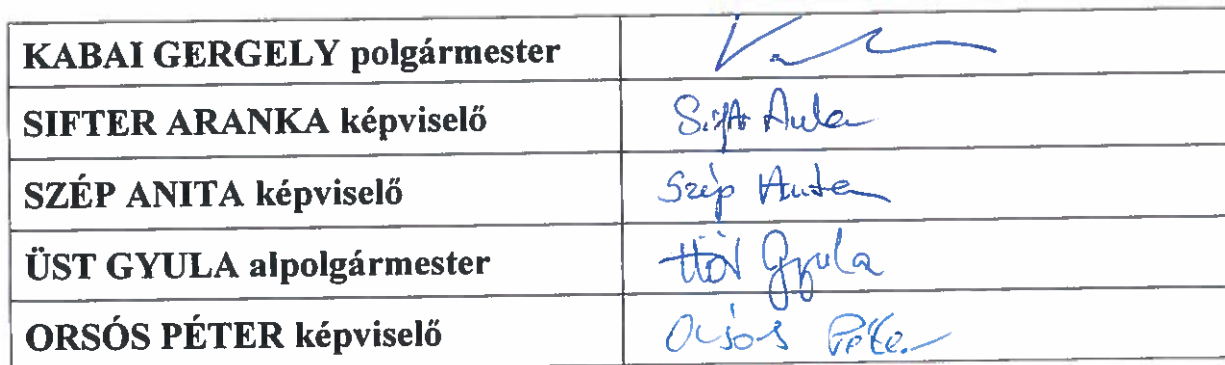 KABAI GERGELY polgármester
SIFTER ARANKA képviselő
SZÉP ANITA képviselő Szép Anita
ÜST GYULA alpolgármester Gyula
ORSÓS PÉTER képviselő Orsós Péter